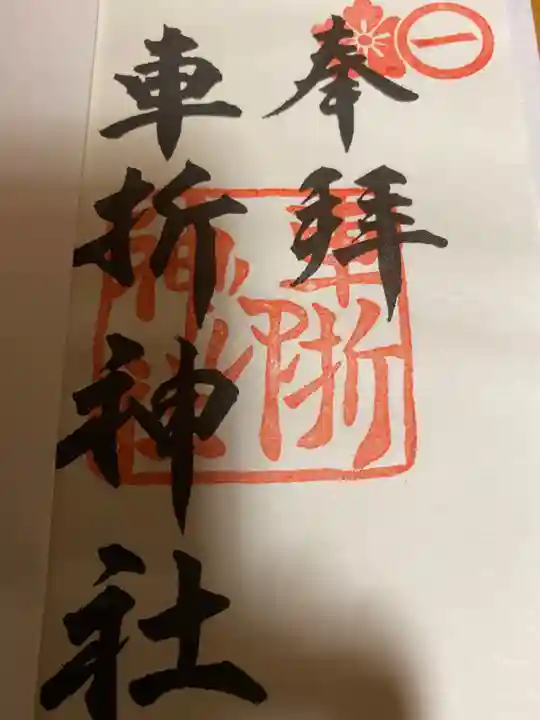 一
奉拝
車折神社
車折
神社